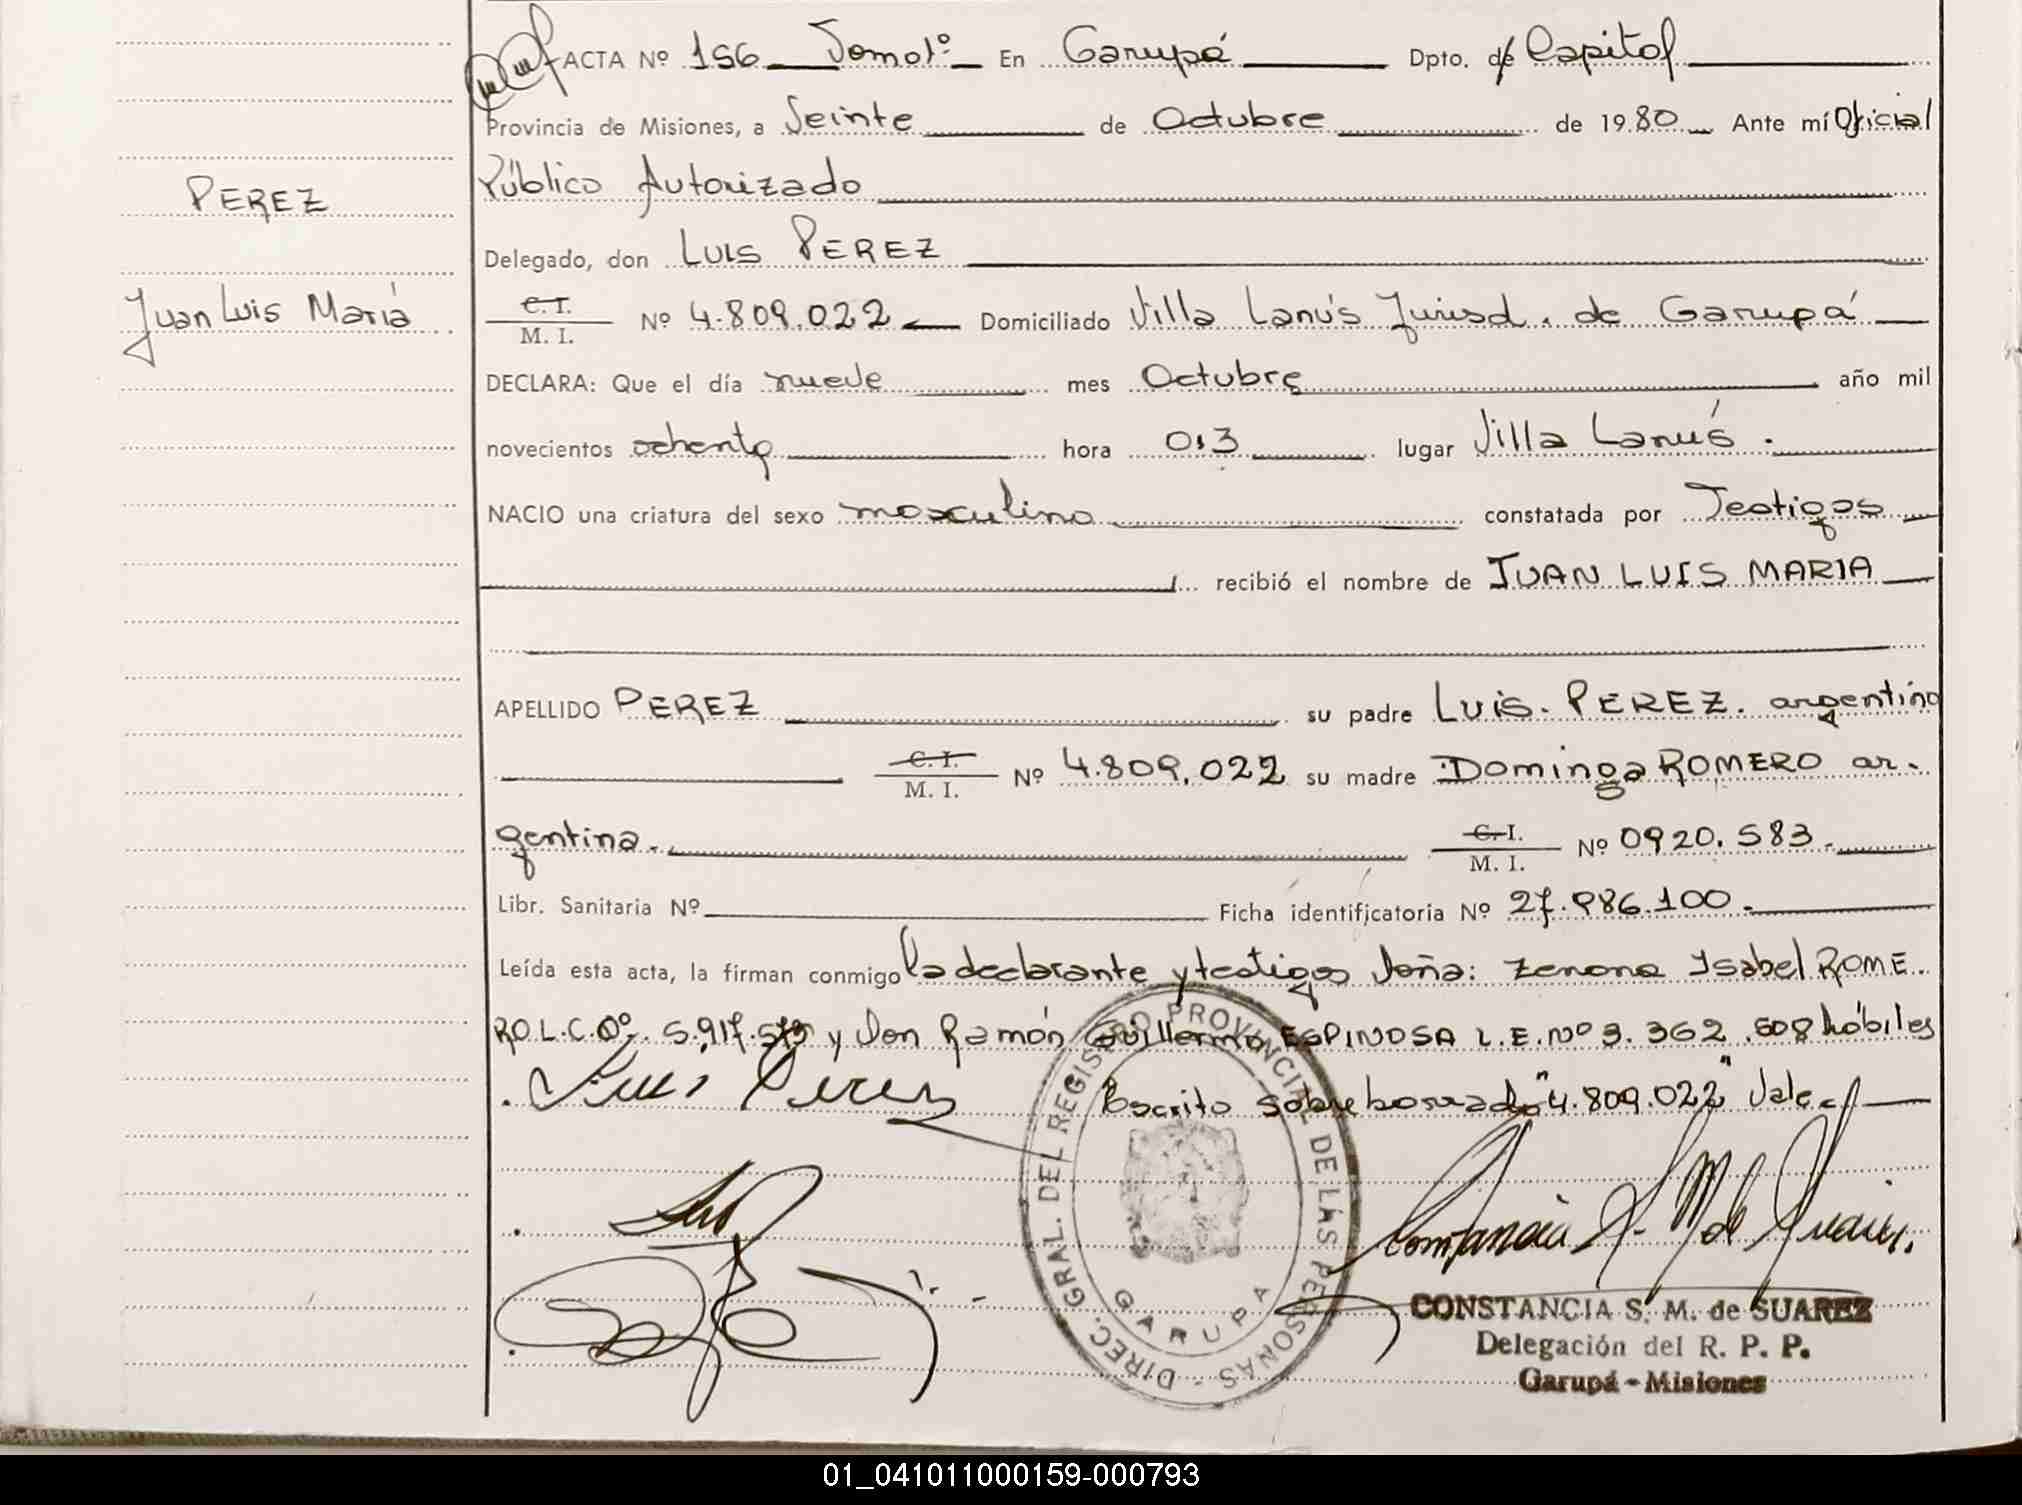 ACTA Nº 156 Tomo 1º En Garupá Dpto. de Capital
Provincia de Misiones, a Veinte de Octubre de 1980 Ante mí Oficial
Público Autorizado
PEREZ
Delegado, don LUIS PEREZ
Juan Luis María
C.I. / M. I. Nº 4.809.022 Domiciliado Villa Lanús Jurisd. de Garupá
DECLARA: Que el día nueve mes Octubre año mil
novecientos ochenta hora 03 lugar Villa Lanús.
NACIO una criatura del sexo masculino constatada por Testigos
recibió el nombre de JUAN LUIS MARIA
APELLIDO PEREZ su padre LUIS. PEREZ. argentino
C. I. / M. I. Nº 4.809.022 su madre Dominga ROMERO ar.
gentina. C. I. / M. I. Nº 0920.583.
Libr. Sanitaria Nº Ficha identificatoria Nº 27.986.100.
Leída esta acta, la firman conmigo la declarante y testigos Doña: Zenona Ysabel ROME.
RO.L.C.Nº. 5.917.573 y Don Ramón Guillermo ESPINOSA L.E.Nº 3.362.508 hábiles
Luis Perez
Escrito sobreborrado "4.809.022" Vale.
Constancia S. M. de Suarez.
DIREC. GRAL. DEL REGISTRO PROVINCIAL DE LAS PERSONAS -
GARUPA
CONSTANCIA S. M. de SUAREZ
Delegación del R. P. P.
Garupá - Misiones
01_041011000159-000793